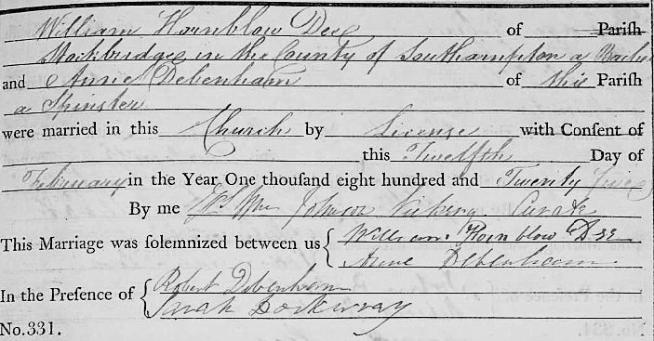 William Hornblow Dee of Parish
Stockbridge in the County of Southampton a Bach
and Anne Debenham of this Parish
a Spinster
were married in this Church by License with Consent of
this Twelfth Day of
February in the Year One thousand eight hundred and Twenty Five
By me Johnson Curate
This Marriage was solemnized between us { William Hornblow Dee
Anne Debenham
In the Presence of { Robert Debenham
Sarah Dockwray
No. 331.